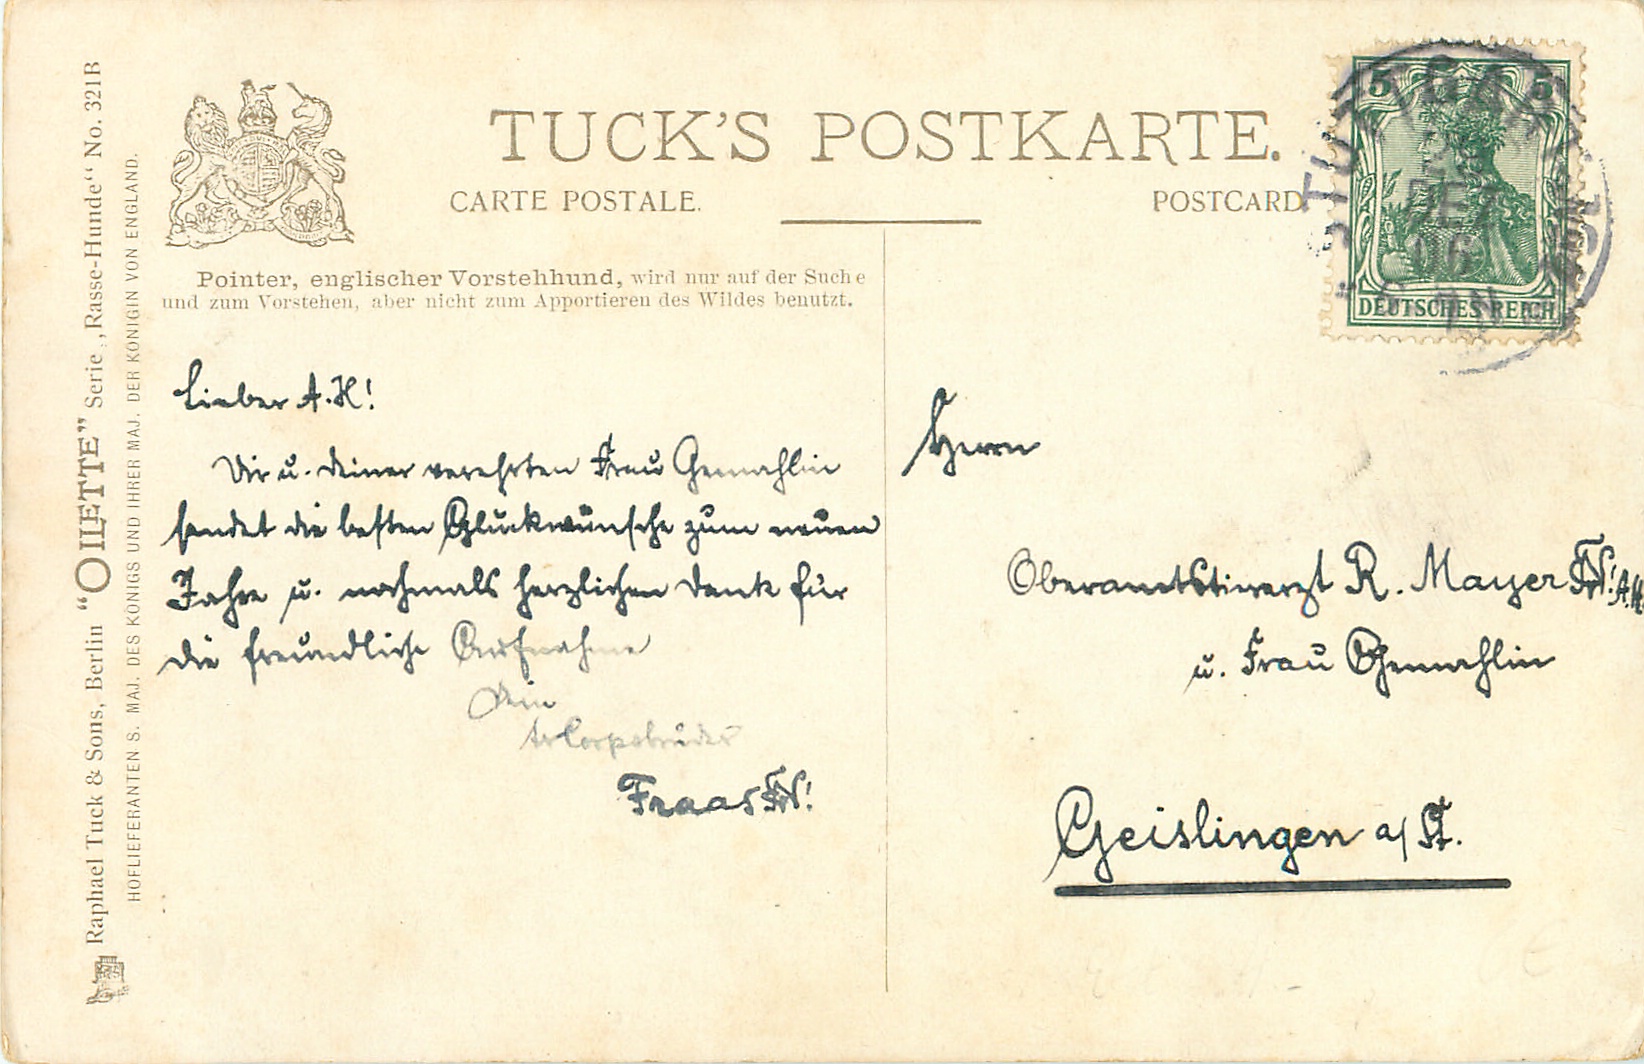 TUCK'S POSTKARTE.
CARTE POSTALE.
POSTCARD
Pointer, englischer Vorstehhund, wird nur auf der Suche
und zum Vorstehen, aber nicht zum Apportieren des Wildes benutzt.
Lieber A.H!
Dir u. deiner verehrten Frau Gemahlin
sendet die besten Glückwünsche zum neuen
Jahre u. nochmals herzlichen Dank für
die freundliche Aufnahme
Dein
tr Corpsbruder
Fraas
Herrn
Oberamtstierarzt R. Mayer A.H.
u. Frau Gemahlin
Geislingen a/St.
Raphael Tuck & Sons, Berlin “OILETTE” Serie „Rasse-Hunde“ No. 321B
HOFLIEFERANTEN S. MAJ. DES KÖNIGS UND IHRER MAJ. DER KÖNIGIN VON ENGLAND.
5 5
DEUTSCHES REICH
STUTTGART
DEZ
06